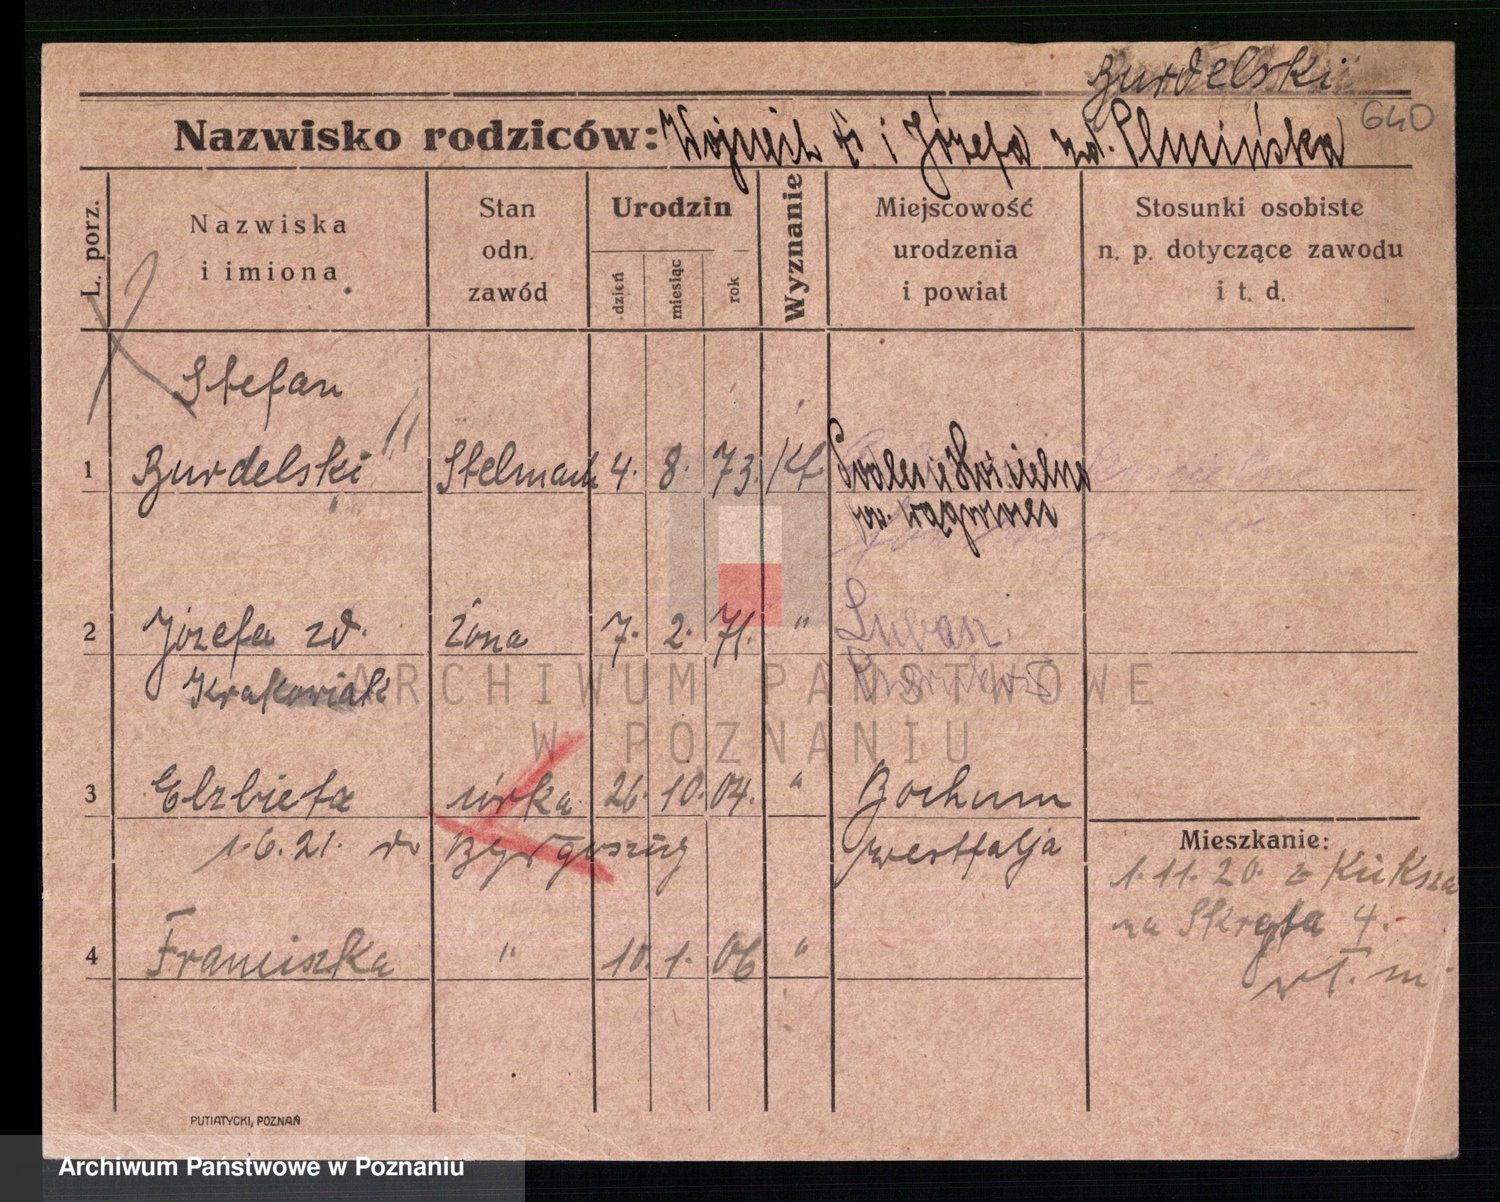 Burdelski
640
Nazwisko rodziców: Wojciech i Józefa zd.
L. porz.
Nazwiska
i imiona
Stan
odn.
zawód
Urodzin
dzień
miesiąc
rok
Wyznanie
Miejscowość
urodzenia
i powiat
Stosunki osobiste
n. p. dotyczące zawodu
i t. d.
Stefan
1 Burdelski Stelmach 4. 8. 73. Kt Podlesie Kościelne
pow. Wągrowiec
2 Józefa zd. żona 7. 2. 71. " Luban
Krakowiak
ARCHIWUM PAŃSTWOWE
W POZNANIU
3 Elzbieta córka 26. 10. 04. " Bochum
1.6.21. do Bydgoszczy Westfalja
Mieszkanie:
1.11.20. z
na Skryta 4.
4 Franciszka " 10. 1. 06 "
PUTIATYCKI, POZNAŃ
Archiwum Państwowe w Poznaniu